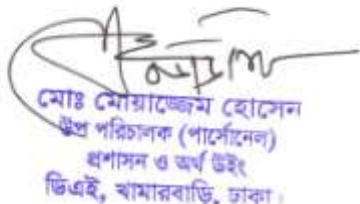 মোঃ মোয়াজ্জেম হোসেন
উপ পরিচালক (পার্সোনেল)
প্রশাসন ও অর্থ উইং
ডিএই, খামারবাড়ি, ঢাকা।